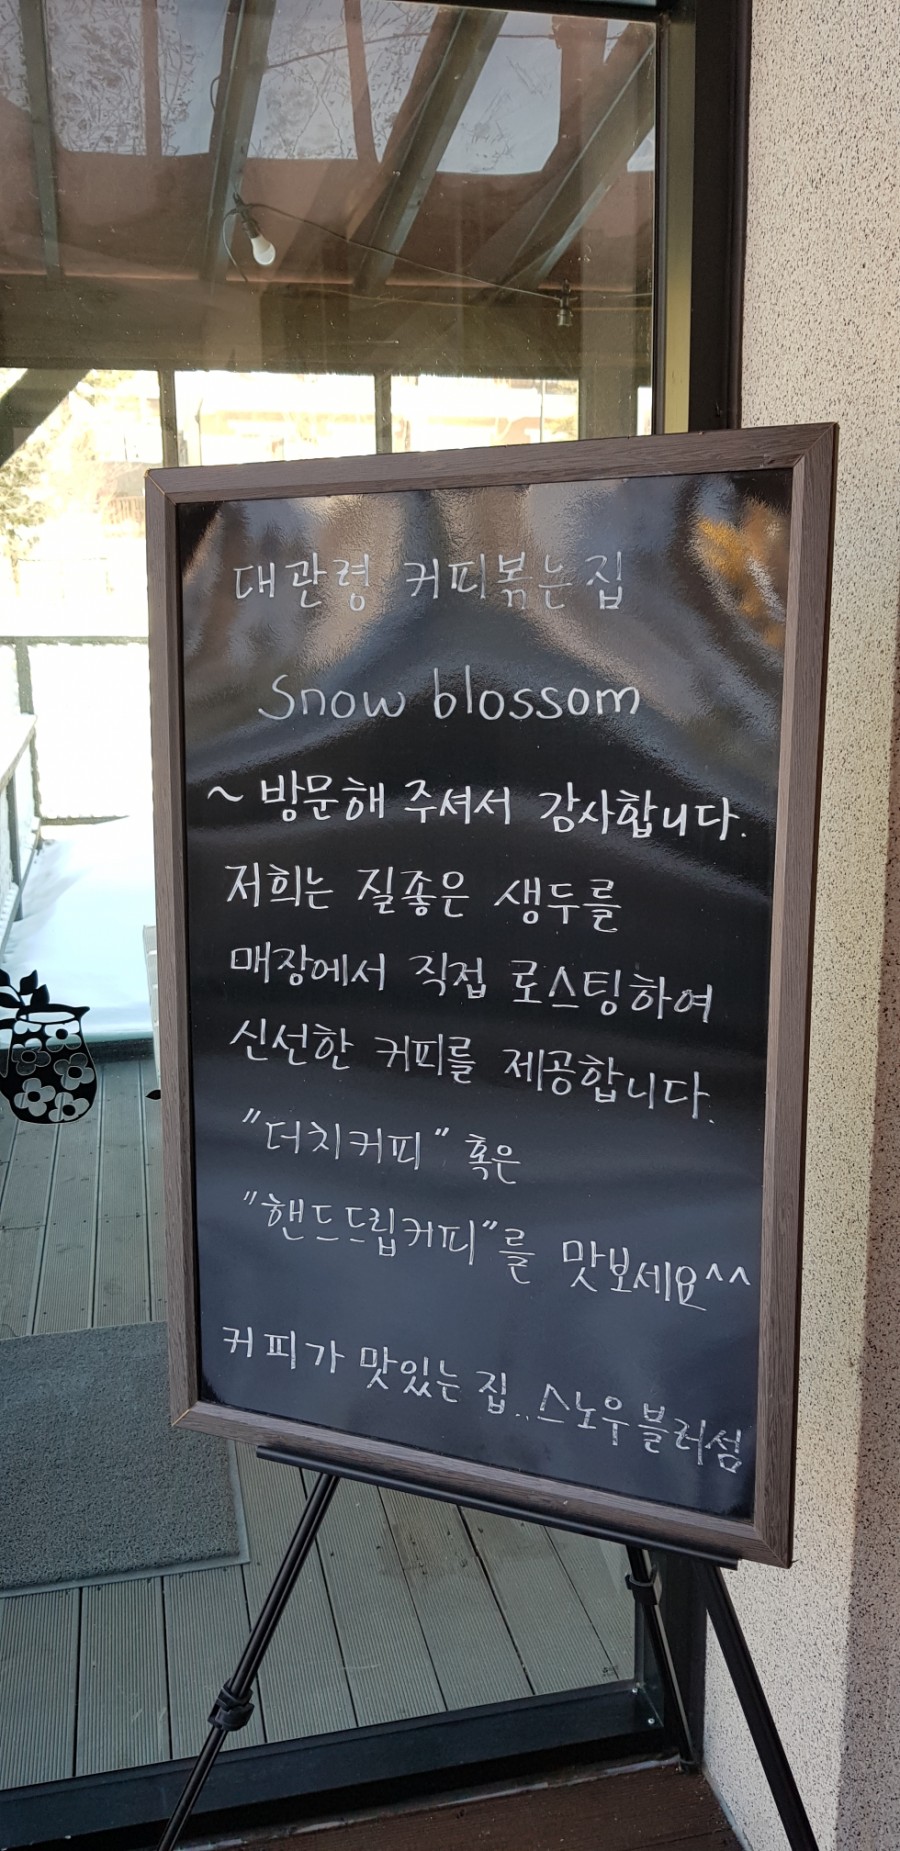 대관령 커피볶는집
Snow blossom
~ 방문해 주셔서 감사합니다.
저희는 질좋은 생두를
매장에서 직접 로스팅하여
신선한 커피를 제공합니다.
"더치커피" 혹은
"핸드드립커피"를 맛보세요^^
커피가 맛있는 집.. 스노우블러섬